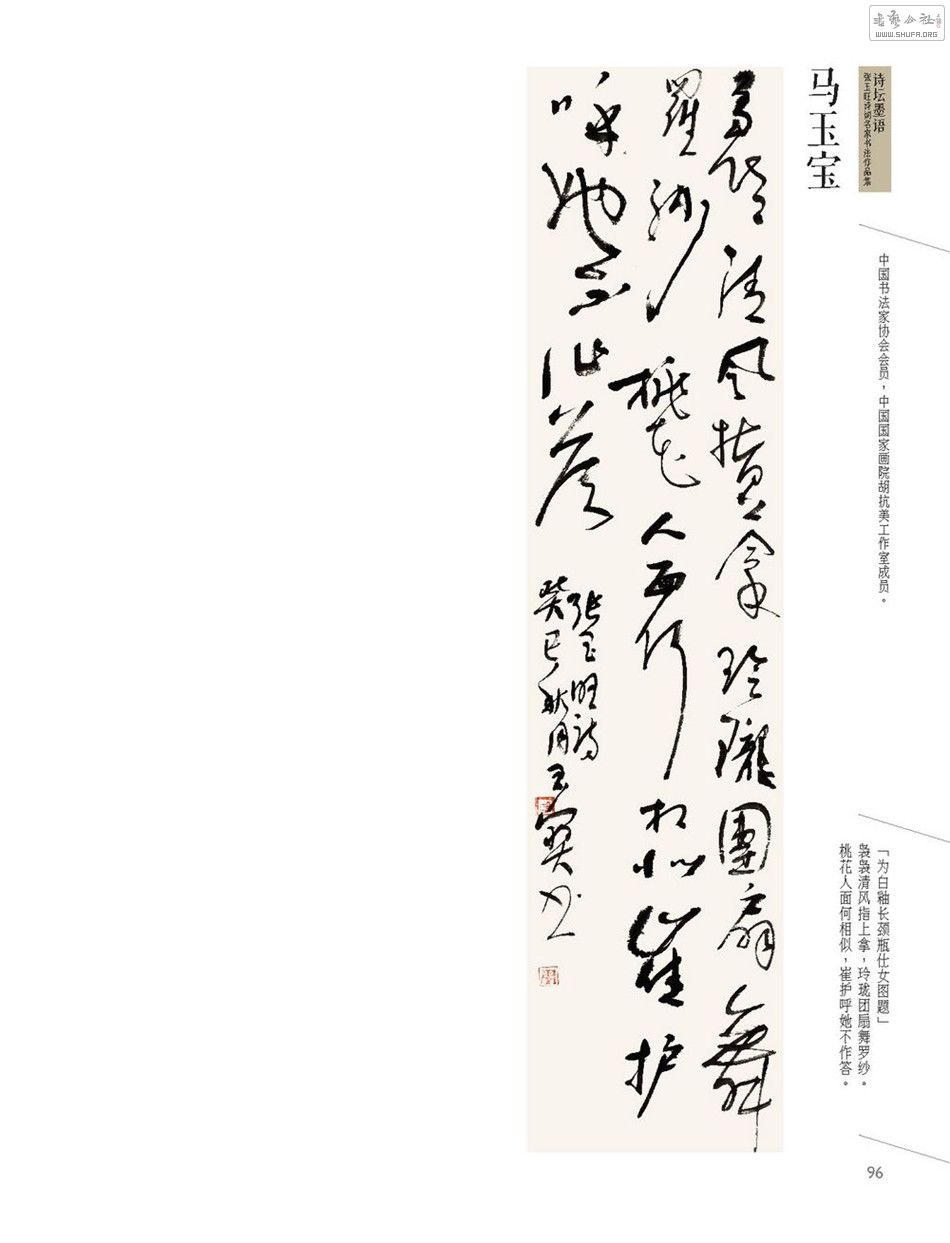 書藝公社
WWW.SHUFA.ORG
诗坛墨语
张玉旺诗词名家书法作品集
马玉宝
中国书法家协会会员，中国国家画院胡抗美工作室成员。
「为白釉长颈瓶仕女图题」
袅袅清风指上拿，玲珑团扇舞罗纱。
桃花人面何相似，崔护呼她不作答。
袅袅清風指上拿玲瓏團扇舞
羅紗桃花人面何相似崔护
呼她不作答
張玉旺詩
癸巳秋月玉寶书
96